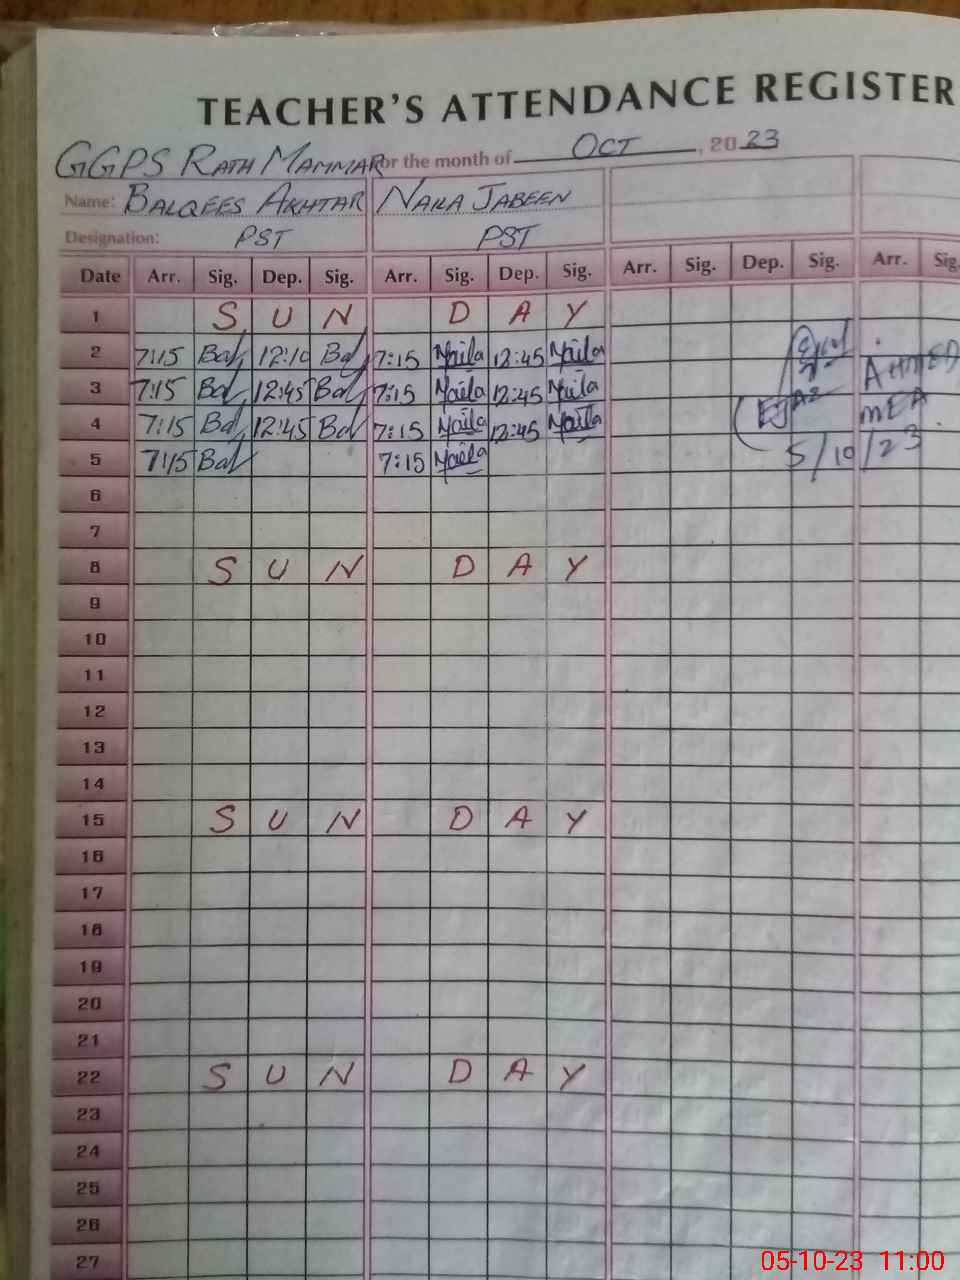 TEACHER'S ATTENDANCE REGISTER
GGPS RATH MAMMAR For the month of OCT, 2023
Name: BALQEES AKHTAR NAILA JABEEN
Designation: PST PST
Date Arr. Sig. Dep. Sig. Arr. Sig. Dep. Sig. Arr. Sig. Dep. Sig. Arr. Sig.
1 S U N D A Y
2 7:15 Bal 12:10 Bal 7:15 Naila 12:45 Naila
3 7:15 Bal 12:45 Bal 7:15 Naila 12:45 Naila AHMED
4 7:15 Bal 12:45 Bal 7:15 Naila 12:45 Naila EJAZ MEA
5 7:15 Bal 7:15 Naila 5/10/23
6
7
8 S U N D A Y
9
10
11
12
13
14
15 S U N D A Y
16
17
18
19
20
21
22 S U N D A Y
23
24
25
26
27
05-10-23 11:00